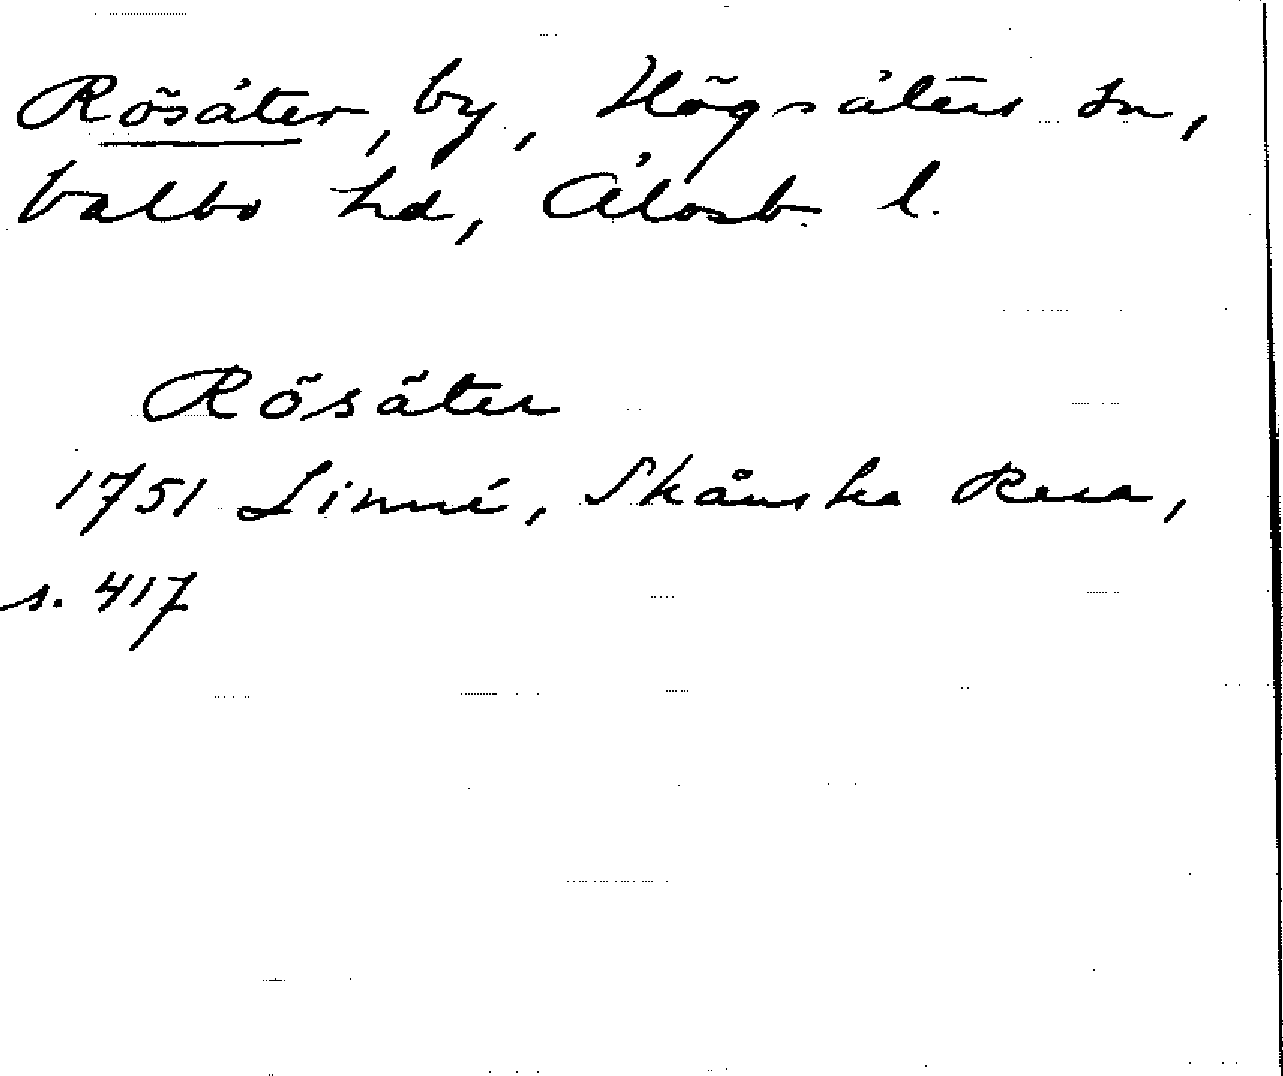 Rösäter, by, Högsäters sn,
Valbo hd, Älvsb. l.
Rösäter
1751 Linné, Skånska Resa,
s. 417